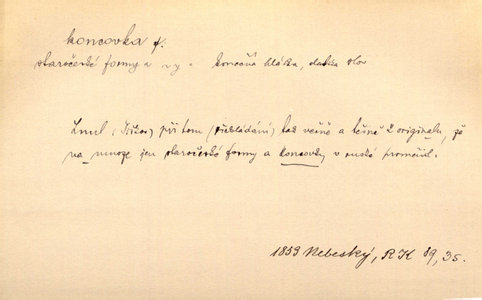 koncovka f.
staročeské formy a
konečná hláska, slov
Lnul (Šiškov) při tom (překládání) tak věrně a těsně k originalu, že
na mnoze jen staročeské formy a koncovky v ruské proměnil.
1853 Nebeský, RK 39, 35.